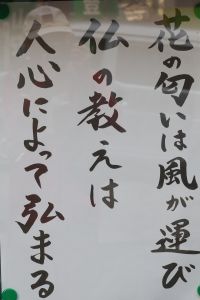 花の匂いは風が運び
仏の教えは
人心によって弘まる